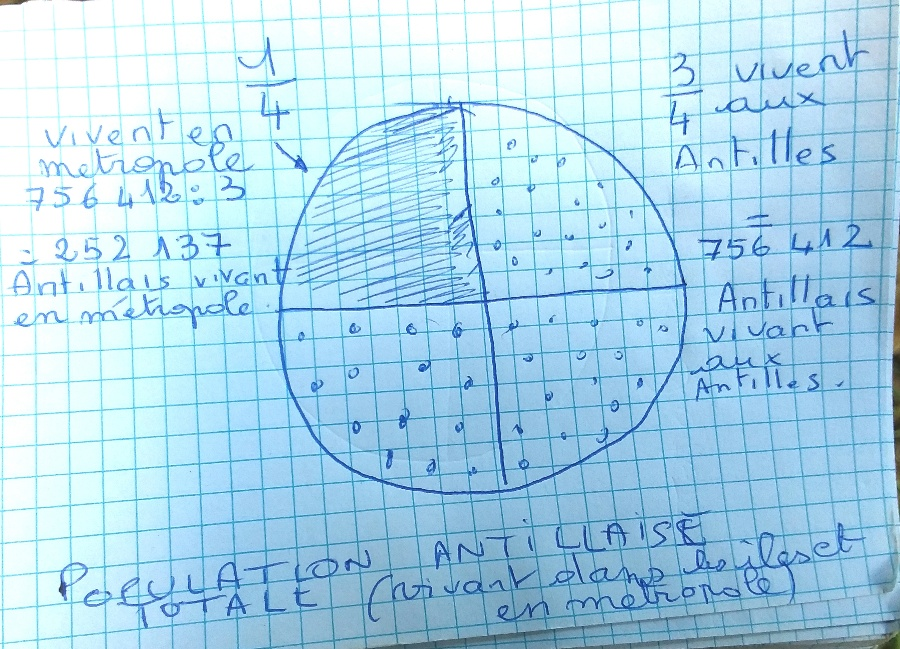 1
4
vivent en
métropole
756 412 : 3
= 252 137
Antillais vivant
en métropole.
3 vivent
4 aux
Antilles
=
756 412
Antillais
vivant
aux
Antilles.
POPULATION ANTILLAISE
TOTALE (vivant dans les îles et
en métropole)